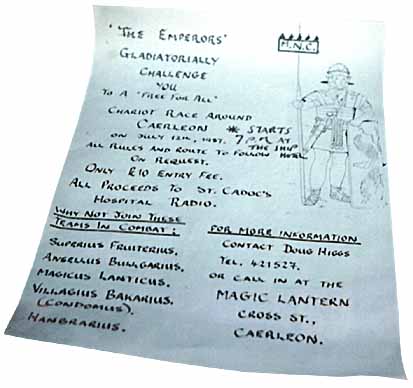 'THE EMPERORS'
GLADIATORIALLY
CHALLENGE
YOU
TO A "FREE FOR ALL"
CHARIOT RACE AROUND
CAERLEON * STARTS
ON JULY 12TH, 7 P.M. AT
THE SHIP
ALL RULES AND ROUTE TO FOLLOW HOTEL
ON REQUEST.
ONLY £10 ENTRY FEE.
ALL PROCEEDS TO ST. CADOC'S
HOSPITAL RADIO.
WHY NOT JOIN THESE
TEAMS IN COMBAT:
SUPERIUS FRUITERIUS.
ANGELLUS BULLGARIUS.
MAGICUS LANTICUS.
VILLAGIUS BAKARIUS.
(CONDOMUS).
HANGRARIUS.
FOR MORE INFORMATION
CONTACT DOUG HIGGS
TEL. 421527.
OR CALL IN AT THE
MAGIC LANTERN
CROSS ST.,
CAERLEON.
M.N.C.